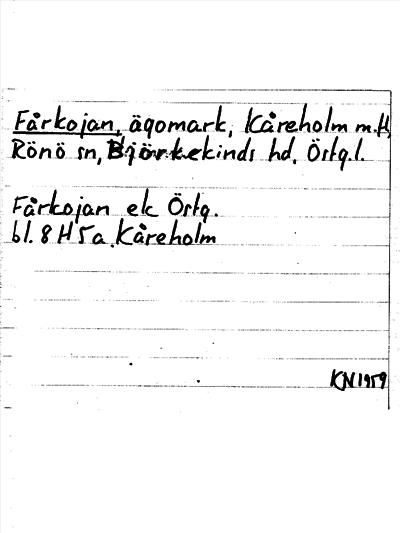 Fårkojan, ägomark, Kåreholm m.fl,
Rönö sn, Björkekinds hd, Östg.l.
Fårkojan ek Östg.
bl. 8 H 5a. Kåreholm
KN 1959